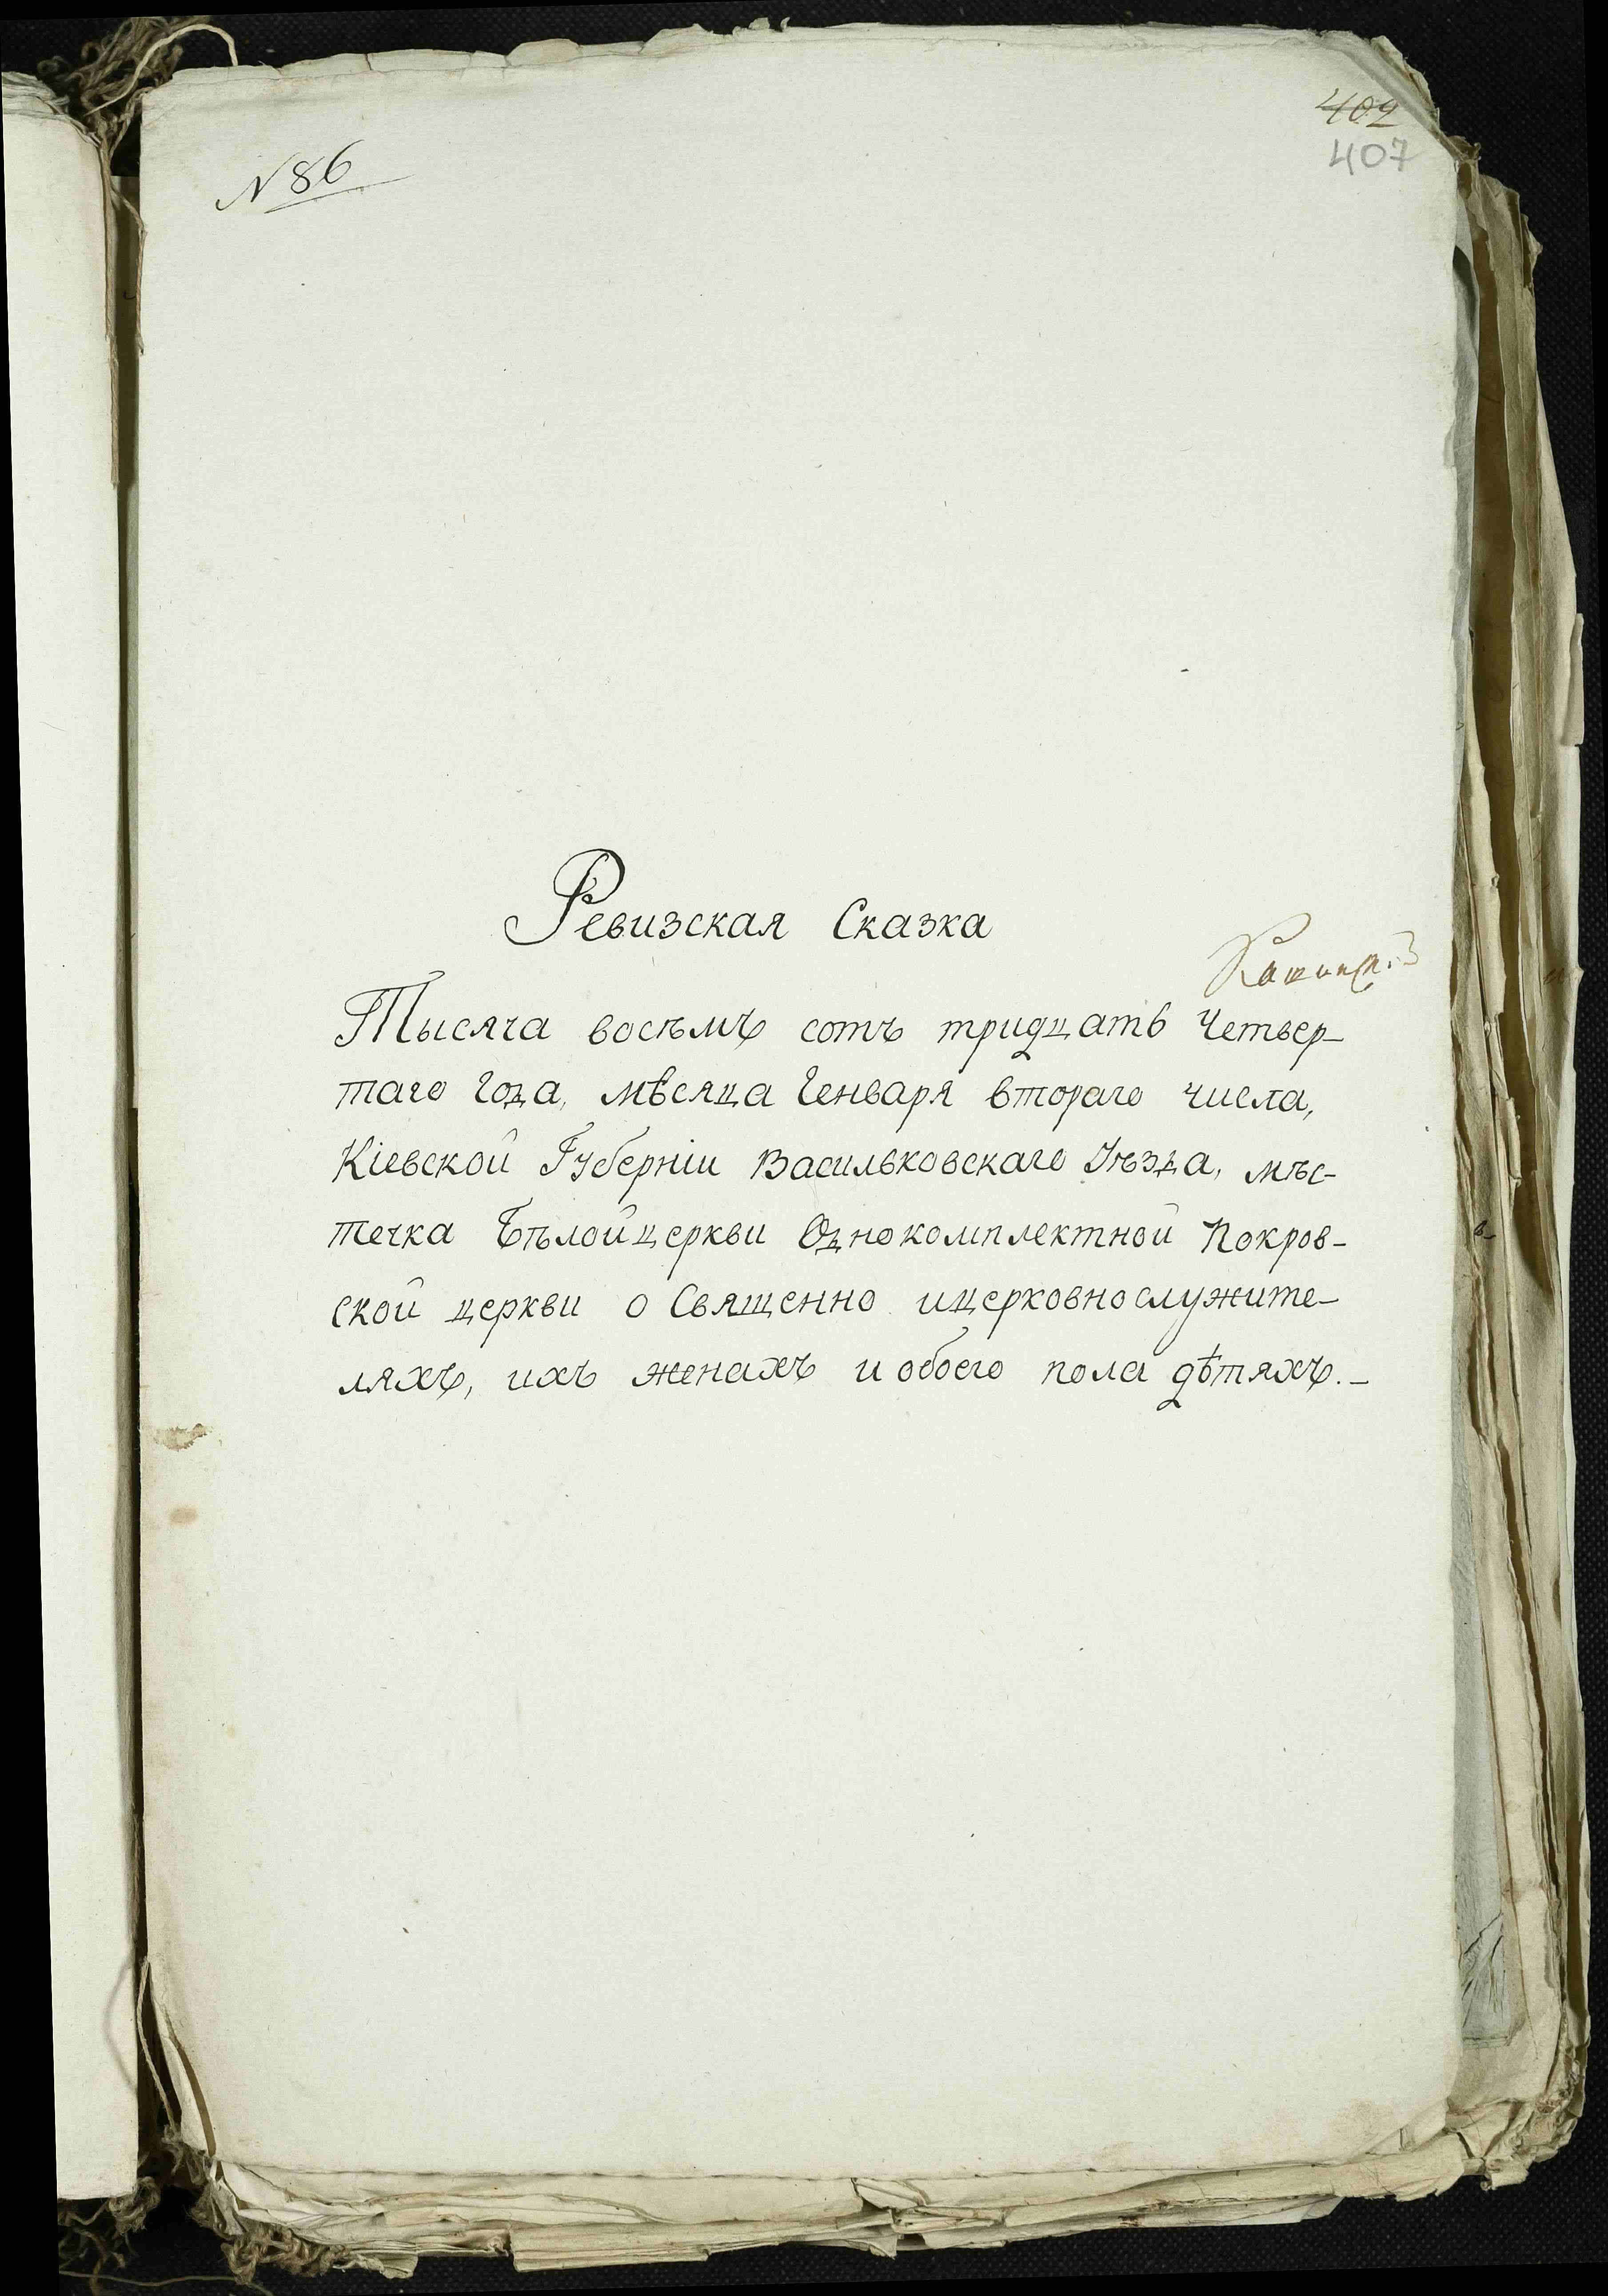 402
407
N 86
Ревизская Сказка
Тысяча восѣмъ сотъ тридцать Четвер-
таго Года, мѣсяца Генваря втораго числа,
Кіевской Губерніи Васильковскаго Уѣзда, мѣс-
течка Бѣлойцеркви Однокомплектной Покров-
ской церкви о Священно ицерковнослужите-
ляхъ, ихъ женахъ и обоего пола дѣтяхъ.-